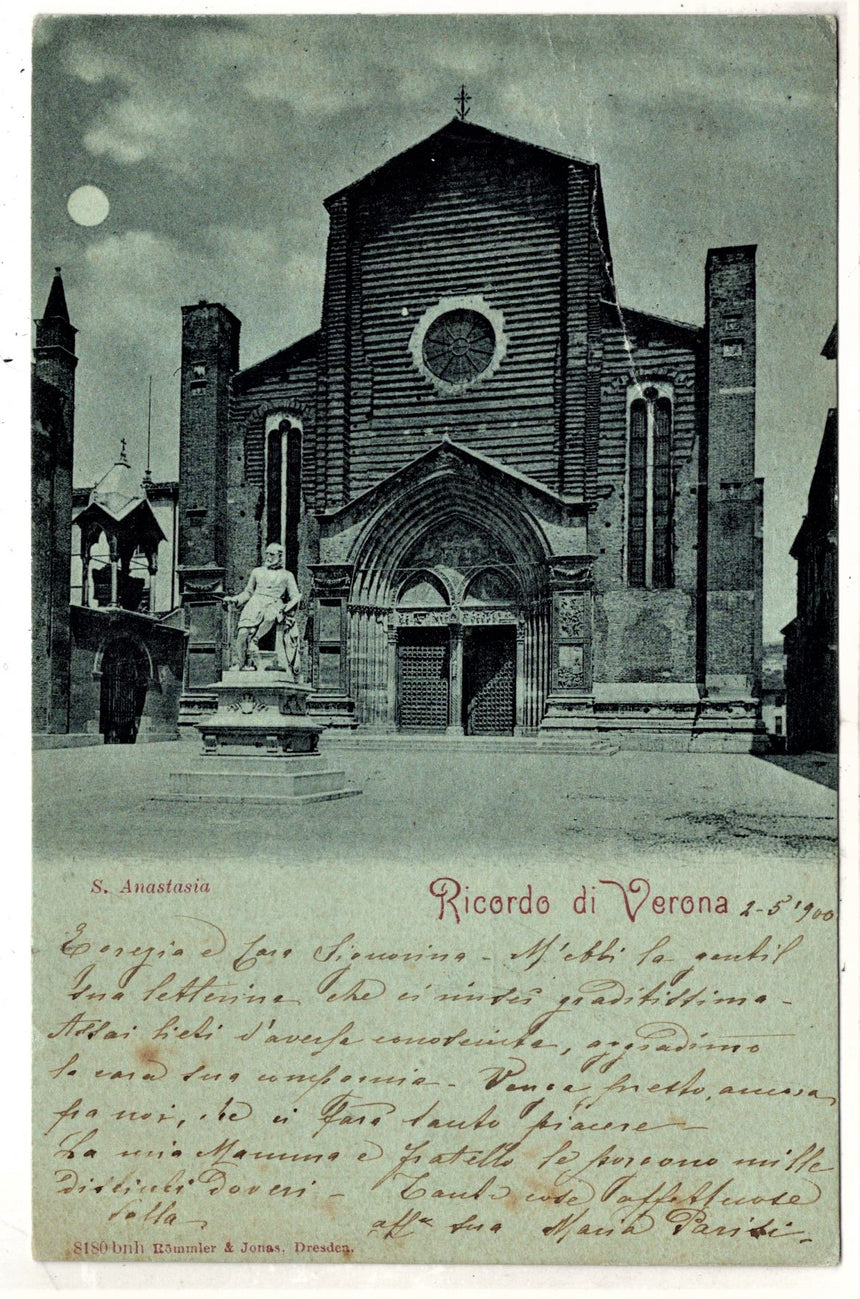 S. Anastasia
Ricordo di Verona 2-5 '900
Egregia e Cara Signorina - M'ebbi la gentil
sua letterina che ci riuscì graditissima -
Assai lieti d'averla conosciuta, aggradimo
la cara sua compagnia - Venga presto, ancora
fra noi, che ci farà tanto piacere -
La mia Mamma e fratello le porgono mille
distinti doveri - Tante cose affettuose
dalla aff.ma sua Maria Parisi -
8180 bnh Römmler & Jonas, Dresden.